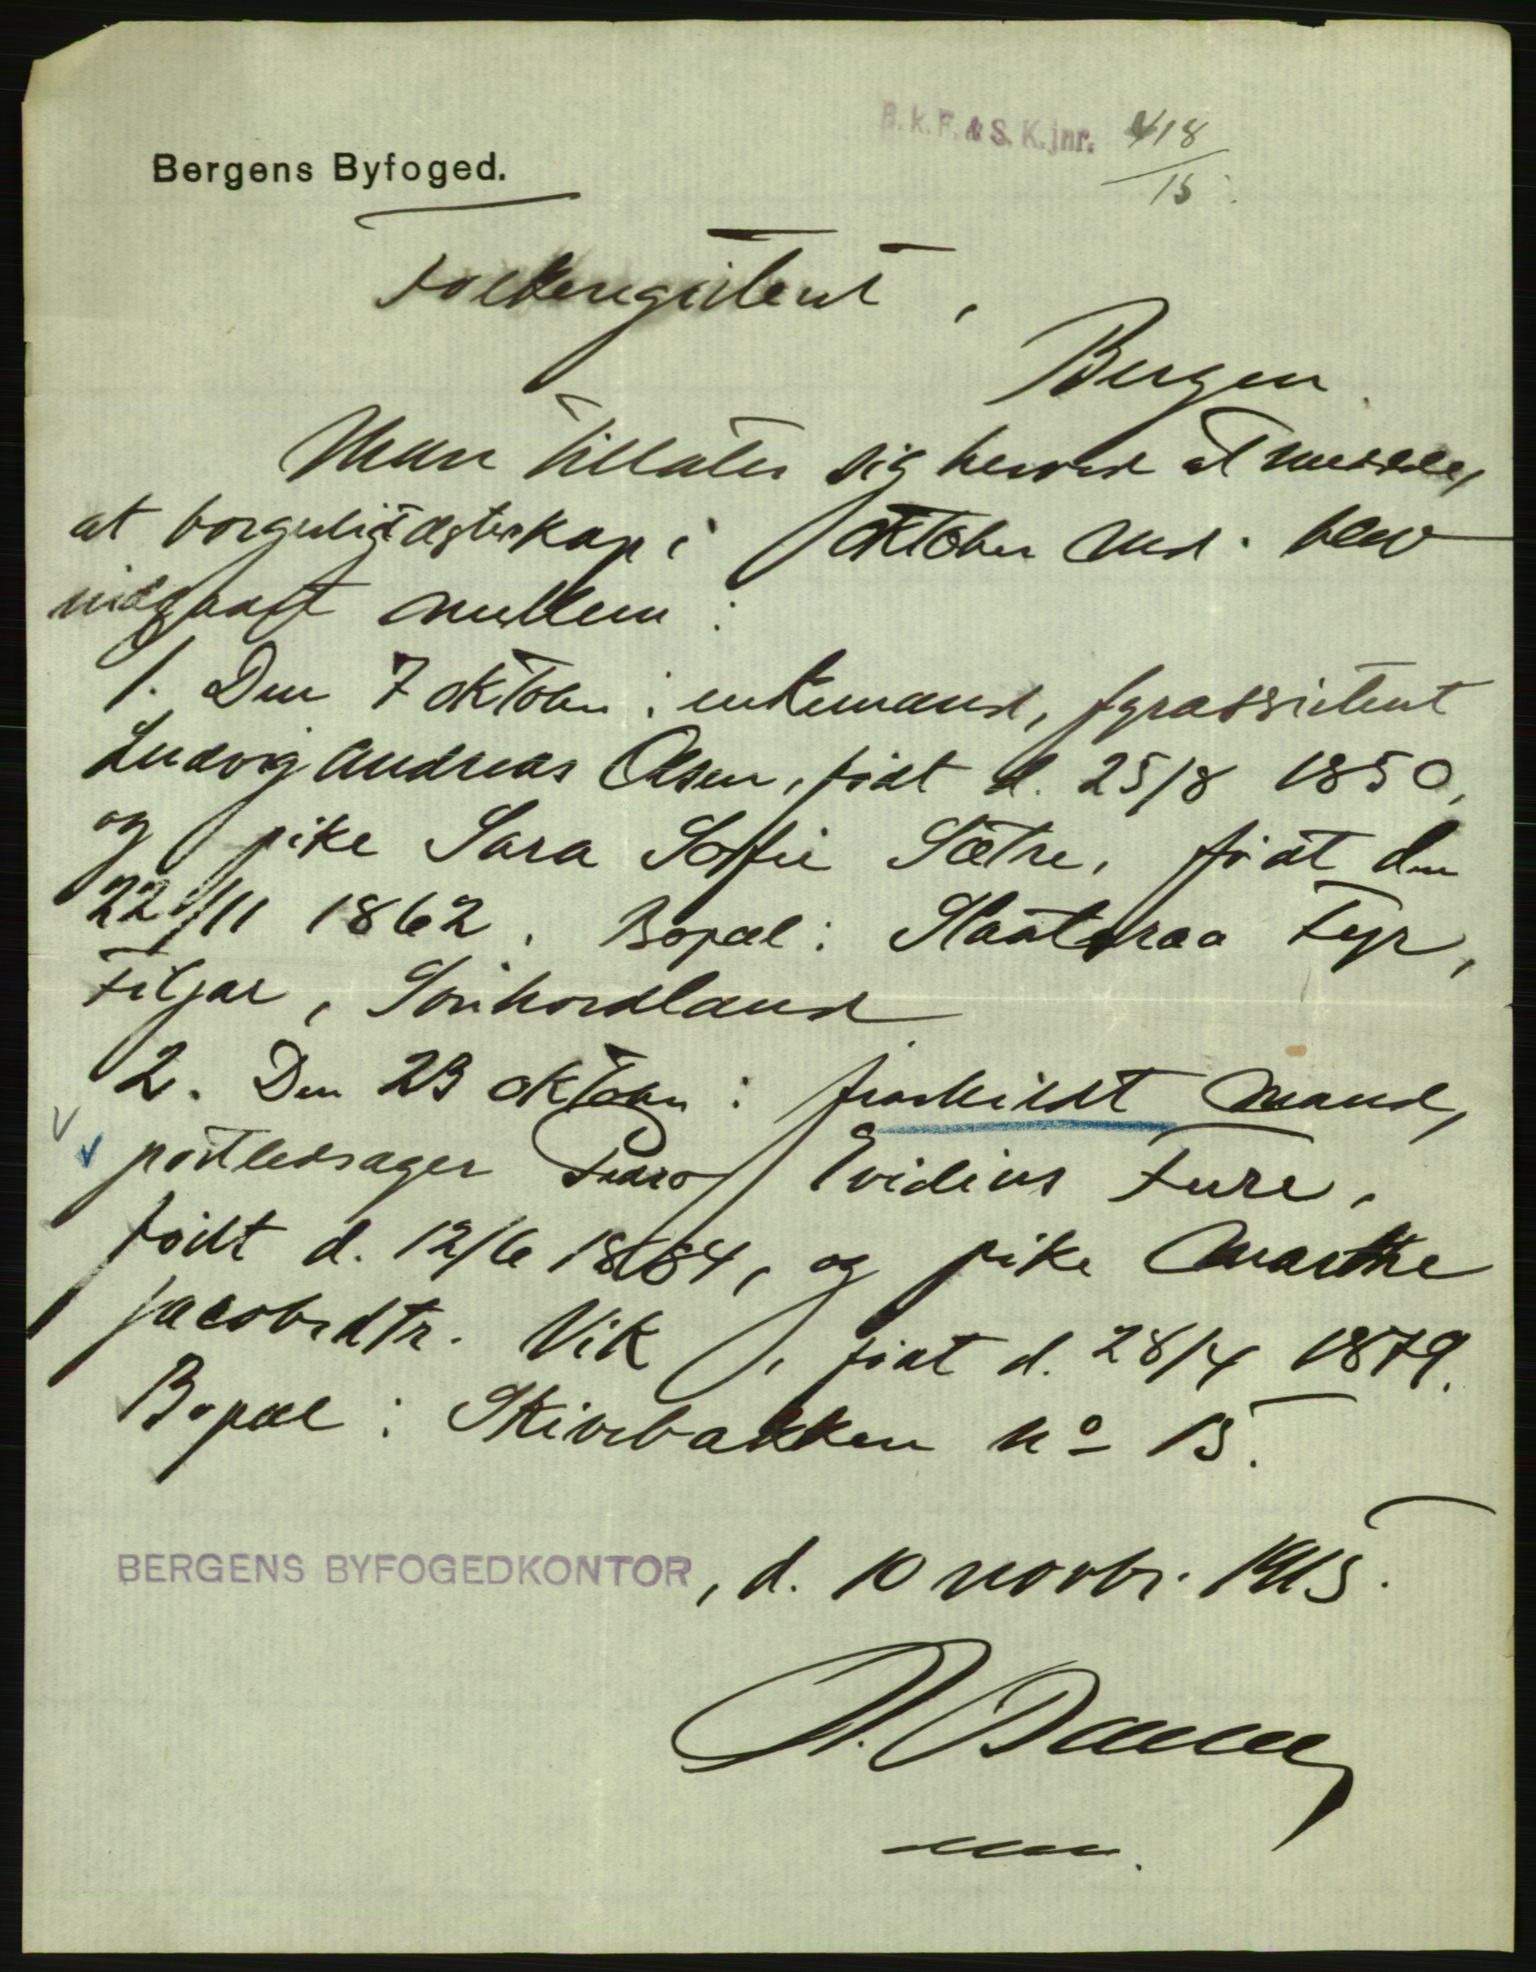 B.k.F. & S.K.jnr. 418
15
Bergens Byfoged.
Folkeregisteret,
Bergen.
Man tillater sig herved at melde,
at borgerlig ægteskap i oktober md. blev
indgaat mellem:
1. Den 7 oktober: enkemand, fyrassistent
Ludvig Andreas Olsen, født d. 25/8 1850,
og pike Sara Sofie Sætre, født den
22/11 1862. Bopæl: Slaatterøa Fyr,
Fitjar, Sönhordland
2. Den 23 oktober: fraskildt mand,
postledsager Peder Evidius Fure,
født d. 12/6 1884, og pike Marthe
Jacobsdtr. Vik, født d. 28/4 1879.
Bopæl: Skivebakken No 15.
BERGENS BYFOGEDKONTOR, d. 10 novbr. 1915.